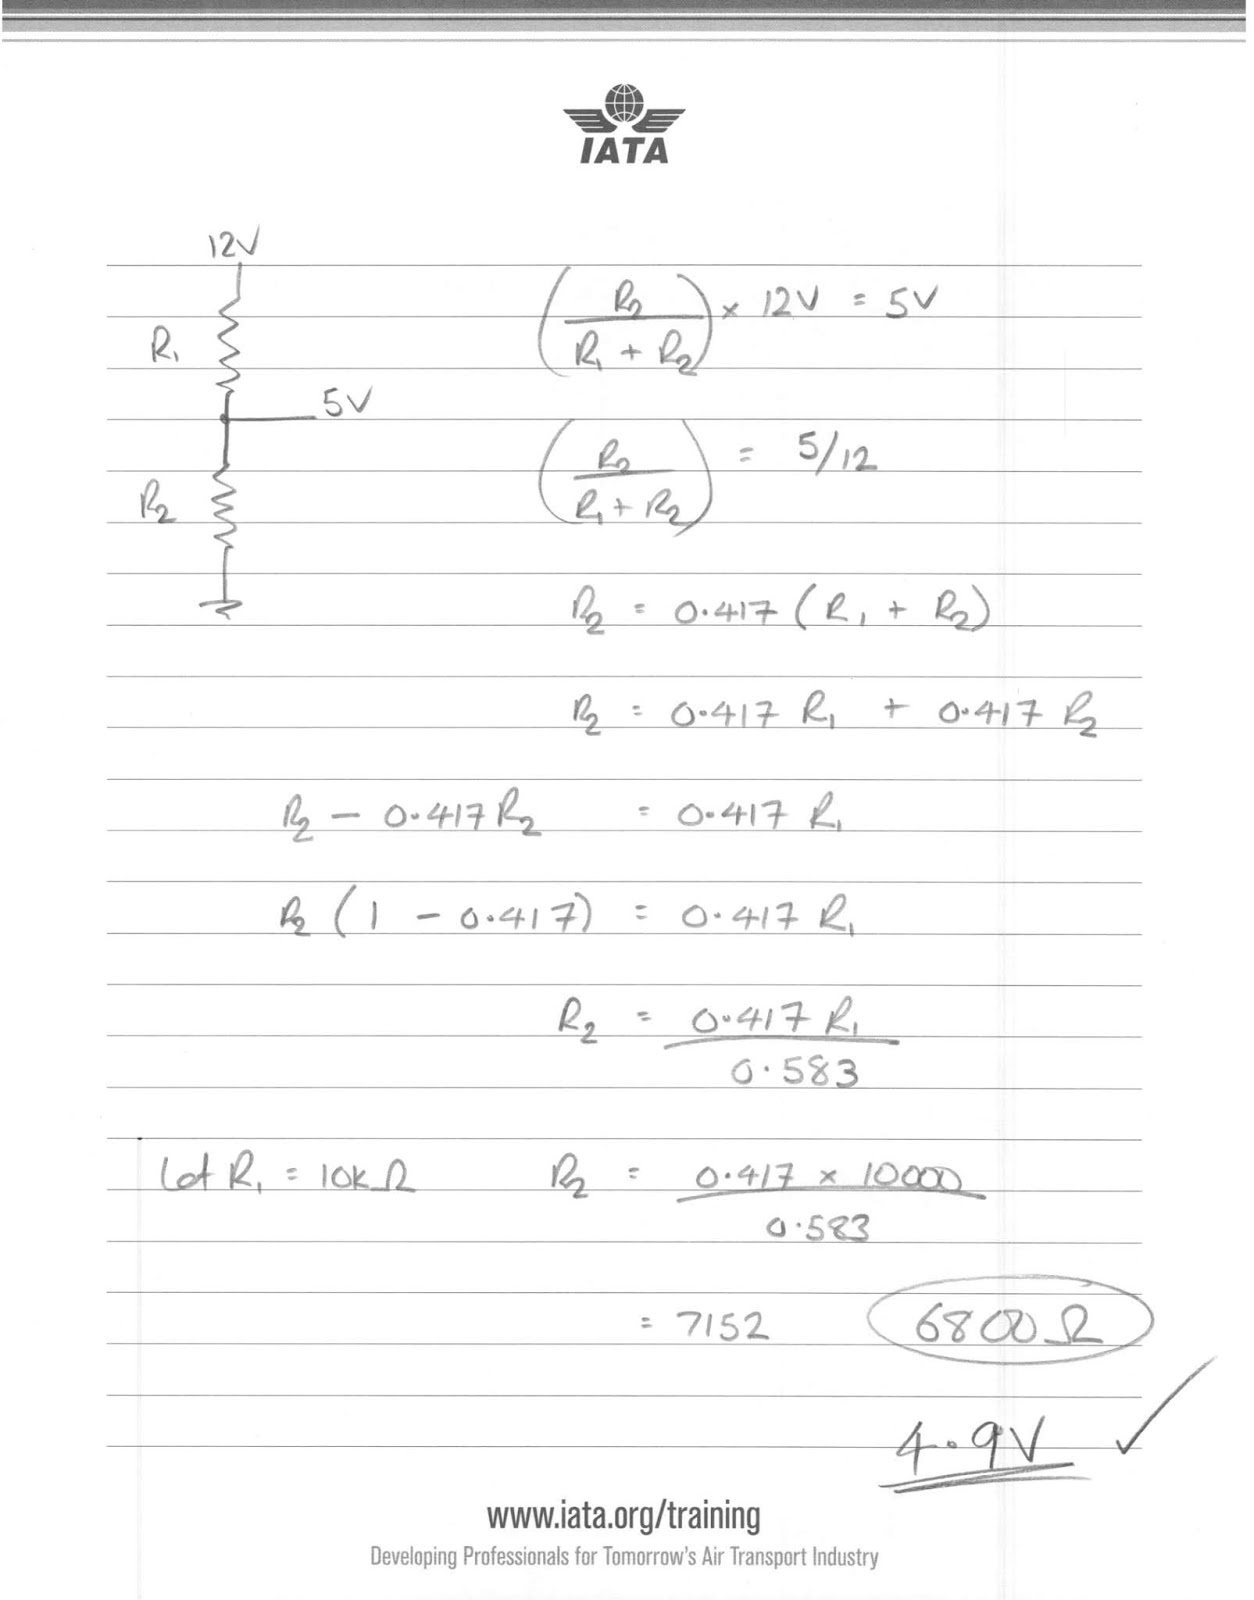 IATA
12V
R₁
5V
R₂
(R₂ / (R₁ + R₂)) × 12V = 5V
(R₂ / (R₁ + R₂)) = 5/12
R₂ = 0.417 (R₁ + R₂)
R₂ = 0.417 R₁ + 0.417 R₂
R₂ − 0.417 R₂ = 0.417 R₁
R₂ (1 − 0.417) = 0.417 R₁
R₂ = 0.417 R₁ / 0.583
Let R₁ = 10K Ω R₂ = 0.417 × 10000 / 0.583
= 7152 6800 Ω
4.9V ✓
www.iata.org/training
Developing Professionals for Tomorrow's Air Transport Industry